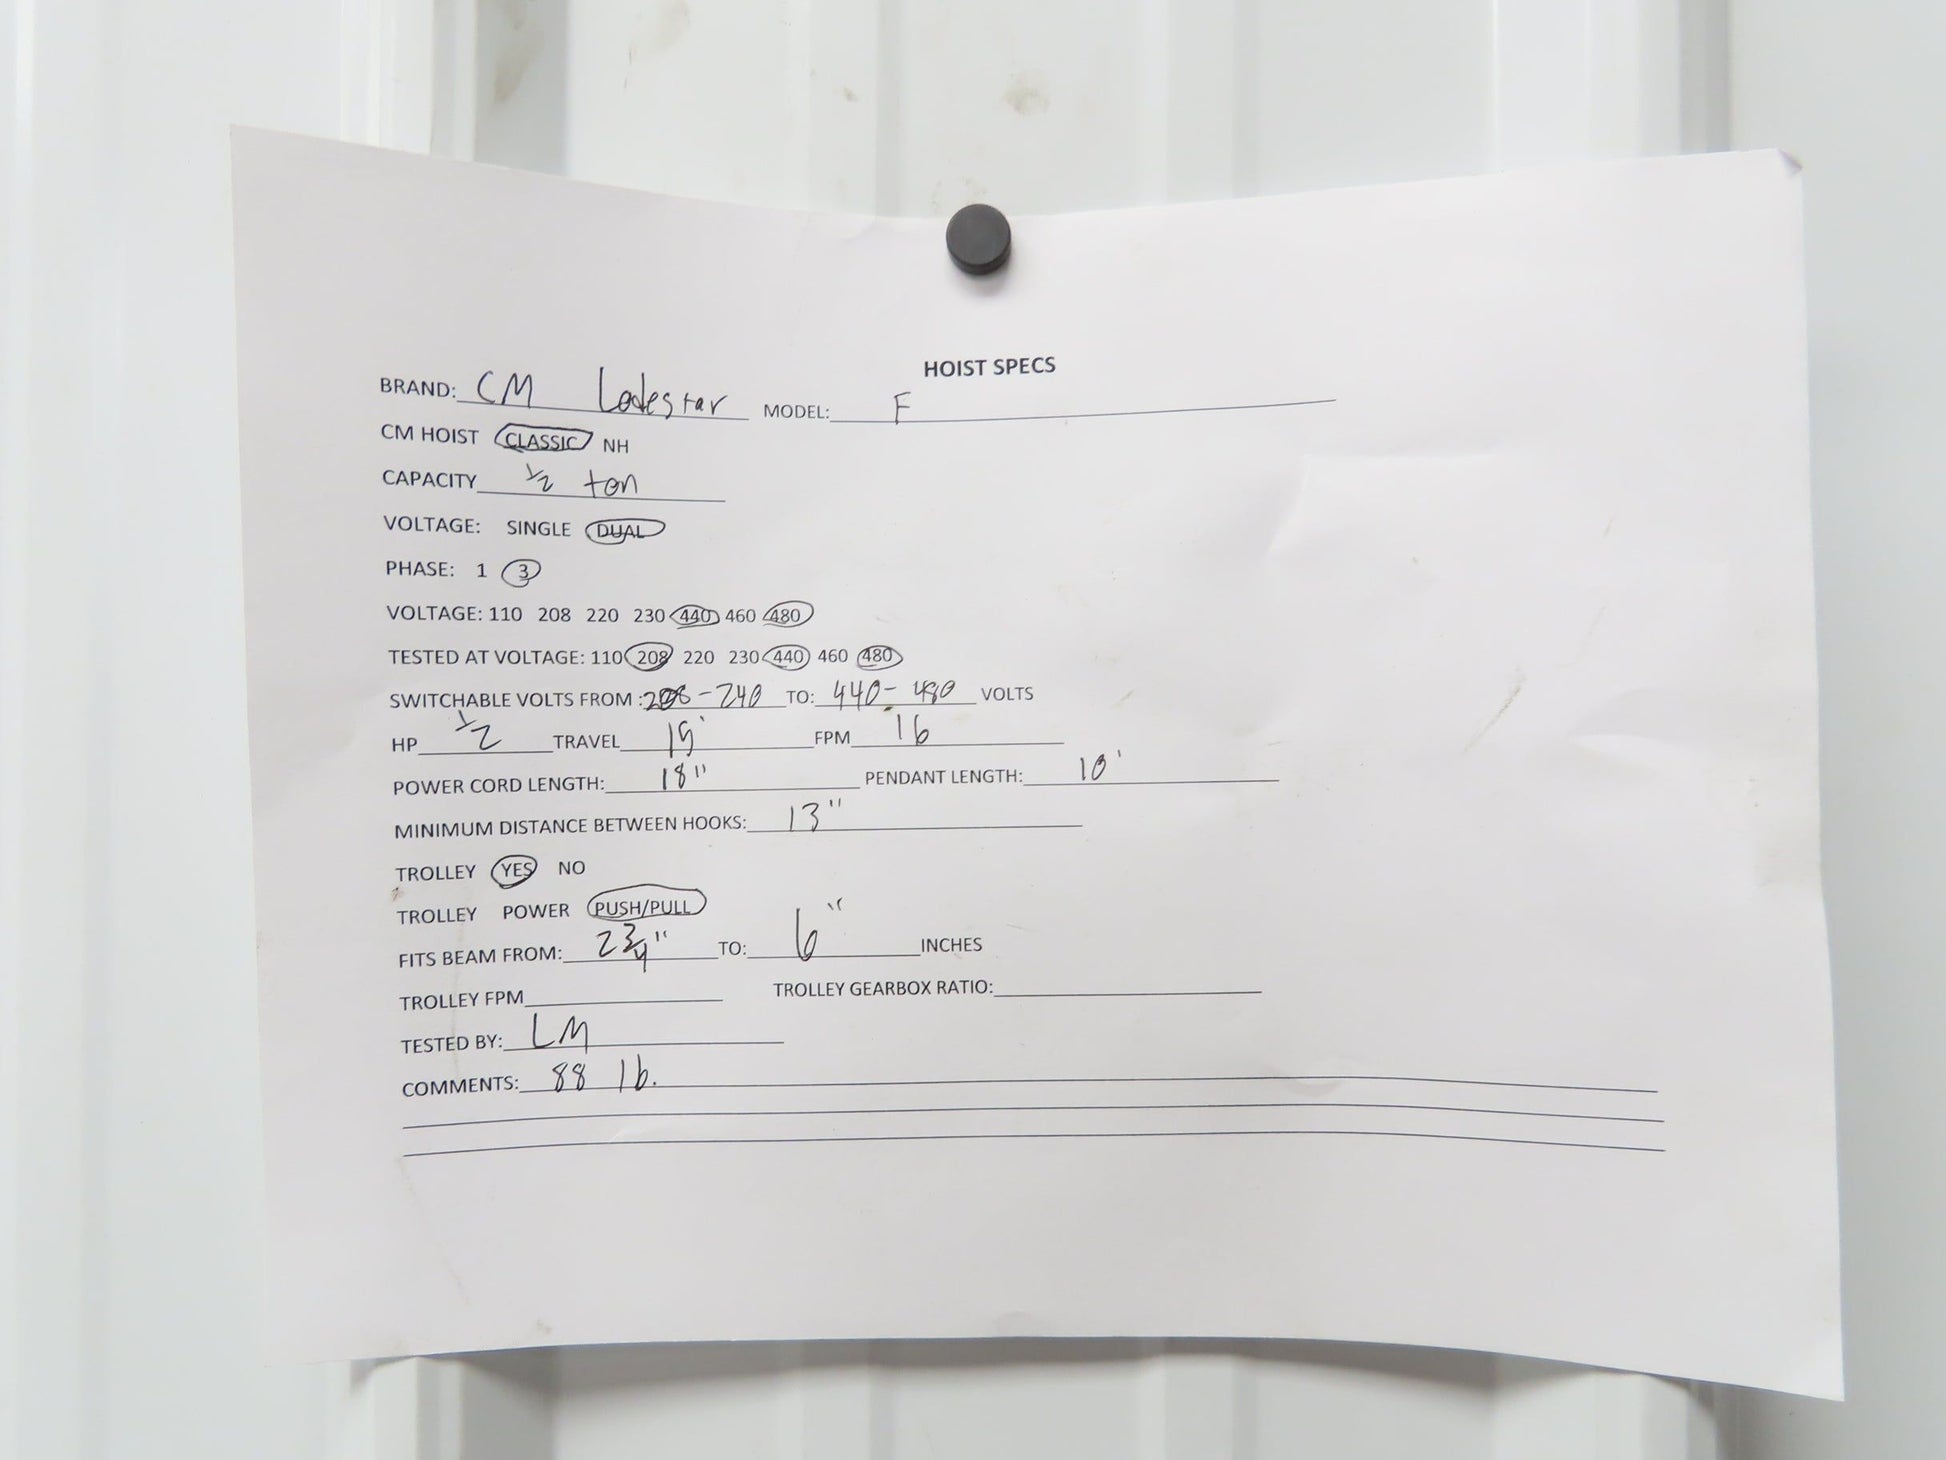 HOIST SPECS
BRAND: CM Lodestar MODEL: F
CM HOIST CLASSIC NH
CAPACITY 1/2 ton
VOLTAGE: SINGLE DUAL
PHASE: 1 3
VOLTAGE: 110 208 220 230 440 460 480
TESTED AT VOLTAGE: 110 208 220 230 440 460 480
SWITCHABLE VOLTS FROM : 208-240 TO: 440-480 VOLTS
HP 1/2 TRAVEL FPM 16
POWER CORD LENGTH: 18" PENDANT LENGTH: 10'
MINIMUM DISTANCE BETWEEN HOOKS: 13"
TROLLEY YES NO
TROLLEY POWER PUSH/PULL
FITS BEAM FROM: 2 3/4" TO: 6" INCHES
TROLLEY FPM TROLLEY GEARBOX RATIO:
TESTED BY: LM
COMMENTS: 88 lb.